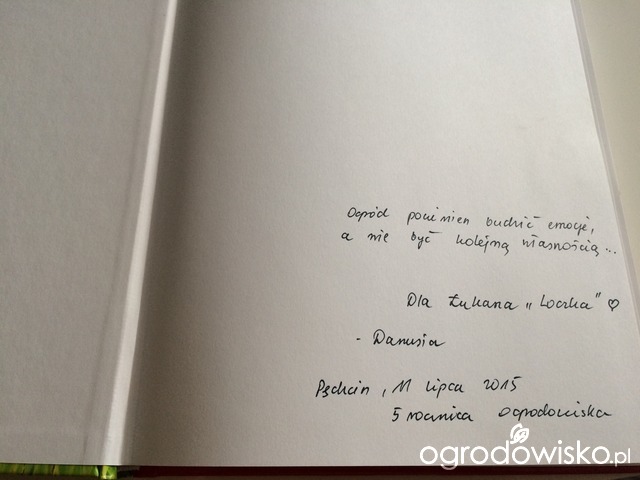 Ogród powinien budzić emocje,
a nie być kolejną własnością...
Dla Łukasza „Loczka” ♡
- Danusia
Pęchcin, 11 lipca 2015
5 rocznica Ogrodowiska
ogrodowisko.pl